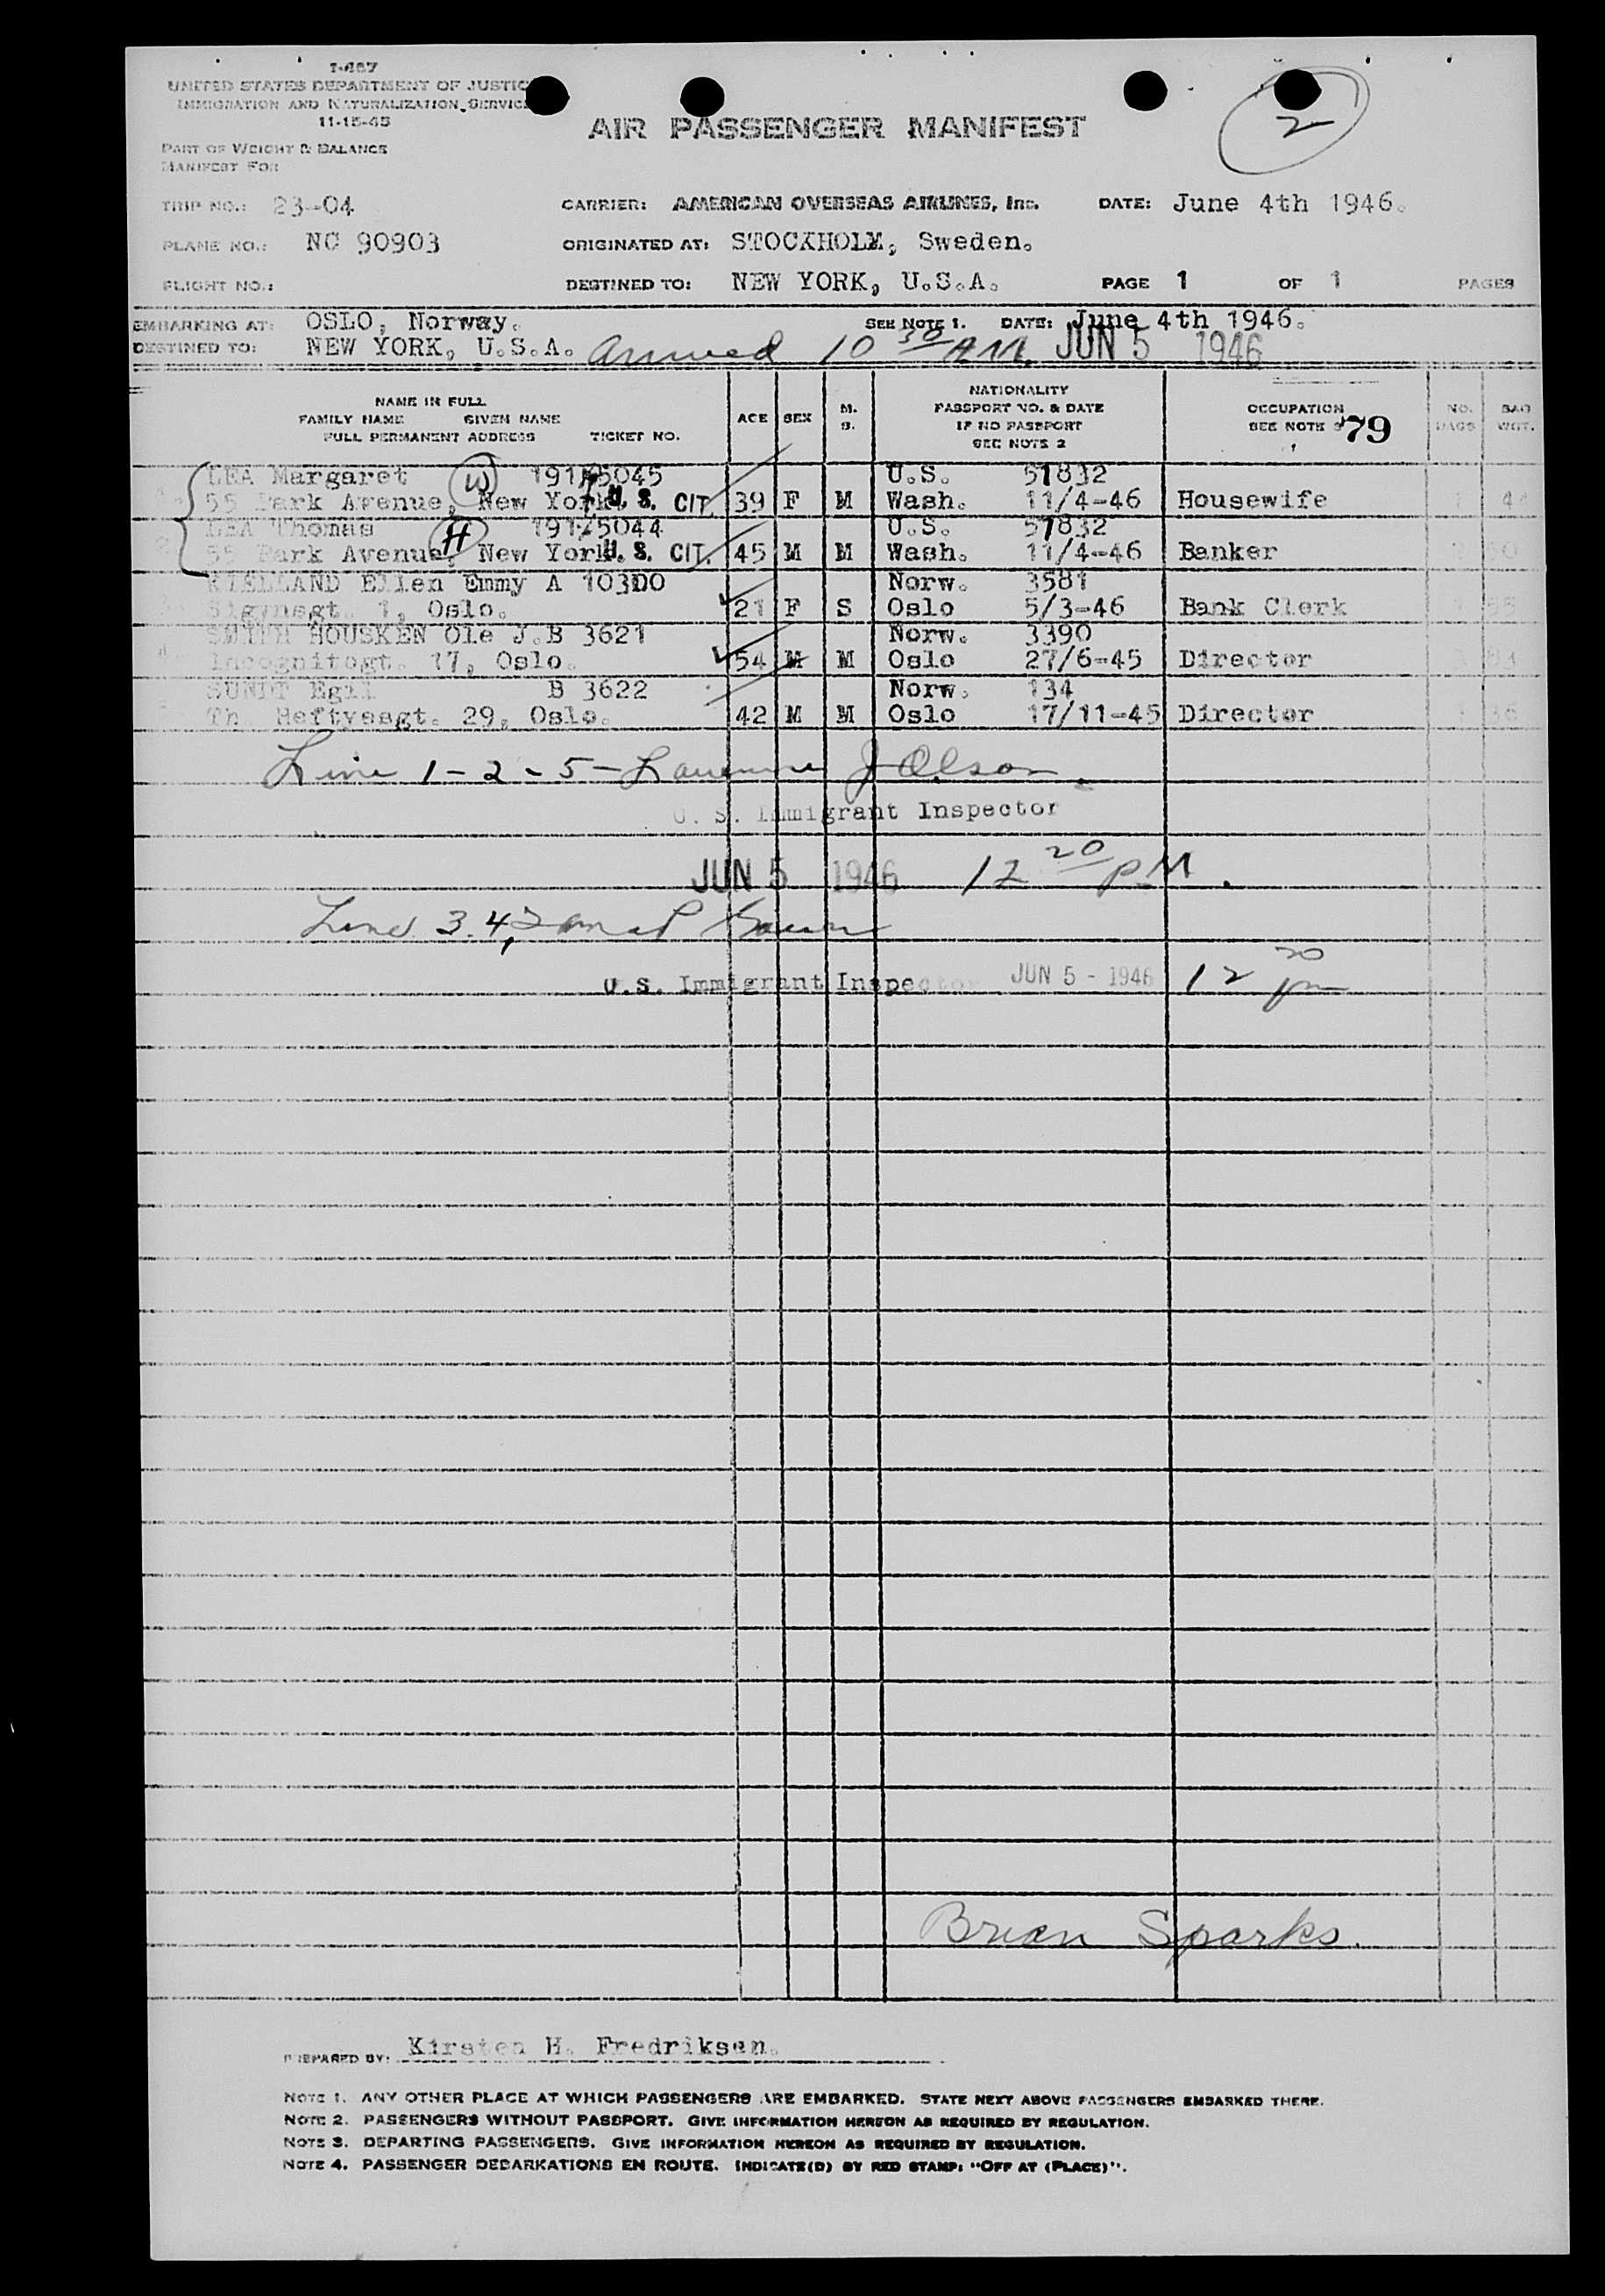 I-467
UNITED STATES DEPARTMENT OF JUSTIC
IMMIGRATION AND NATURALIZATION SERVIC
11-15-45
AIR PASSENGER MANIFEST
2
PART OF WEIGHT & BALANCE
MANIFEST FOR
TRIP NO.: 23-04 CARRIER: AMERICAN OVERSEAS AIRLINES, Inc. DATE: June 4th 1946.
PLANE NO.: NC 90903 ORIGINATED AT: STOCKHOLM, Sweden.
FLIGHT NO.: DESTINED TO: NEW YORK, U.S.A. PAGE 1 OF 1 PAGES
EMBARKING AT: OSLO, Norway. SEE NOTE 1. DATE: June 4th 1946.
DESTINED TO: NEW YORK, U.S.A. Arrived 10 30 AM. JUN 5 1946
NAME IN FULL
FAMILY NAME GIVEN NAME
FULL PERMANENT ADDRESS TICKET NO.
AGE SEX M. S.
NATIONALITY
PASSPORT NO. & DATE
IF NO PASSPORT
SEE NOTE 2
OCCUPATION
SEE NOTE 3 79
NO. BAGS BAG WGT.
LEA Margaret W 5045 U.S. 51832
55 Park Avenue, New York. U. S. CIT. 39 F M Wash. 11/4-46 Housewife 1 44
LEA Thomas H 5044 U.S. 51832
55 Park Avenue, New York. U. S. CIT. 45 M M Wash. 11/4-46 Banker
KIELLAND Ellen Emmy A 10300 Norw. 3581
1, Oslo. 21 F S Oslo 5/3-46 Bank Clerk
SMITH HOUSKEN Ole J. B 3621 Norw. 3390
Incognitogt. 17, Oslo. 54 M M Oslo 27/6-45 Director
SUNDT Egil B 3622 Norw. 134
Th. Heftyesgt. 29, Oslo. 42 M M Oslo 17/11-45 Director
Line 1-2-5- Lawrence J Olson.
U. S. Immigrant Inspector
JUN 5 1946 12 20 PM.
Line 3.4,
U.S. Immigrant Inspector JUN 5 - 1946 12 20 pm
Brian Sparks.
PREPARED BY: Kirsten H. Fredriksen.
NOTE 1. ANY OTHER PLACE AT WHICH PASSENGERS ARE EMBARKED. STATE NEXT ABOVE PASSENGERS EMBARKED THERE.
NOTE 2. PASSENGERS WITHOUT PASSPORT. GIVE INFORMATION HEREON AS REQUIRED BY REGULATION.
NOTE 3. DEPARTING PASSENGERS. GIVE INFORMATION HEREON AS REQUIRED BY REGULATION.
NOTE 4. PASSENGER DEBARKATIONS EN ROUTE. INDICATE(D) BY RED STAMP: "OFF AT (PLACE)".